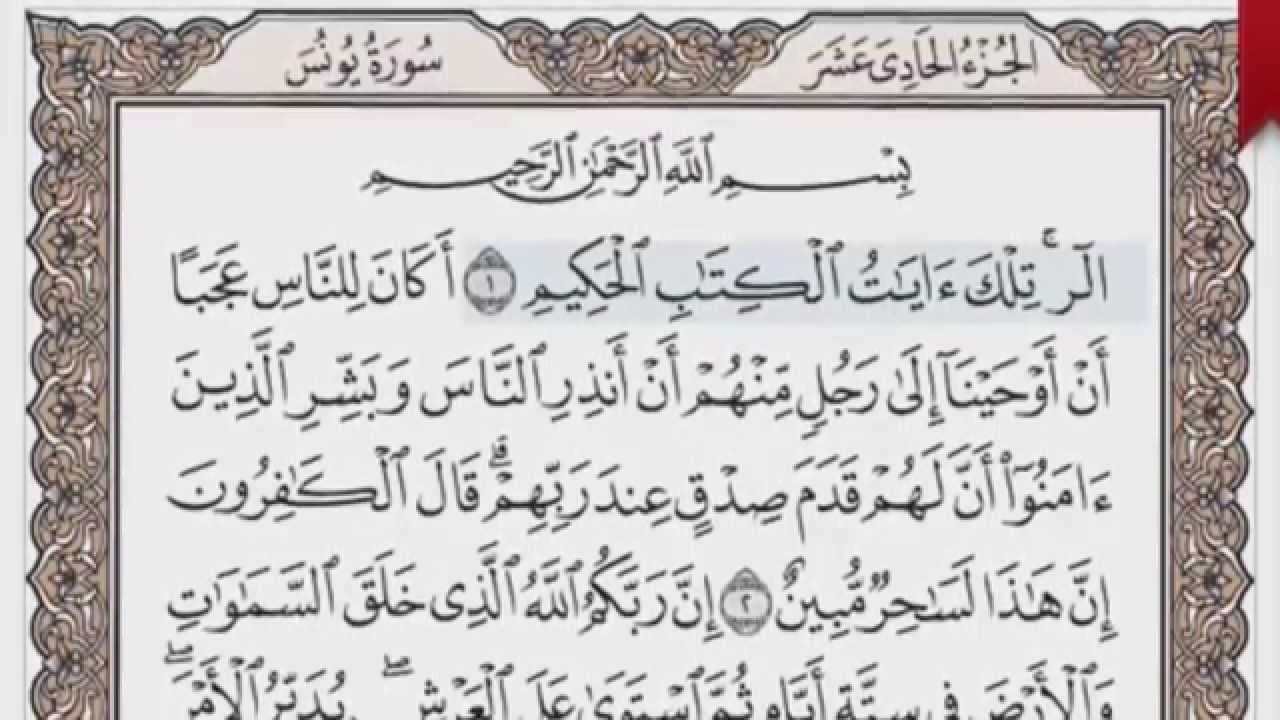 الجُزْءُ الحَادِىَ عَشَرَ
سُورَةُ يُونُسَ
بِسْمِ ٱللَّهِ ٱلرَّحْمَٰنِ ٱلرَّحِيمِ
الٓرۚ تِلْكَ ءَايَٰتُ ٱلْكِتَٰبِ ٱلْحَكِيمِ ١ أَكَانَ لِلنَّاسِ عَجَبًا
أَنْ أَوْحَيْنَآ إِلَىٰ رَجُلٍ مِّنْهُمْ أَنْ أَنذِرِ ٱلنَّاسَ وَبَشِّرِ ٱلَّذِينَ
ءَامَنُوٓا۟ أَنَّ لَهُمْ قَدَمَ صِدْقٍ عِندَ رَبِّهِمْۗ قَالَ ٱلْكَٰفِرُونَ
إِنَّ هَٰذَا لَسَٰحِرٌ مُّبِينٌ ٢ إِنَّ رَبَّكُمُ ٱللَّهُ ٱلَّذِى خَلَقَ ٱلسَّمَٰوَٰتِ
وَٱلْأَرْضَ فِى سِتَّةِ أَيَّامٍ ثُمَّ ٱسْتَوَىٰ عَلَى ٱلْعَرْشِۖ يُدَبِّرُ ٱلْأَمْرَۖ